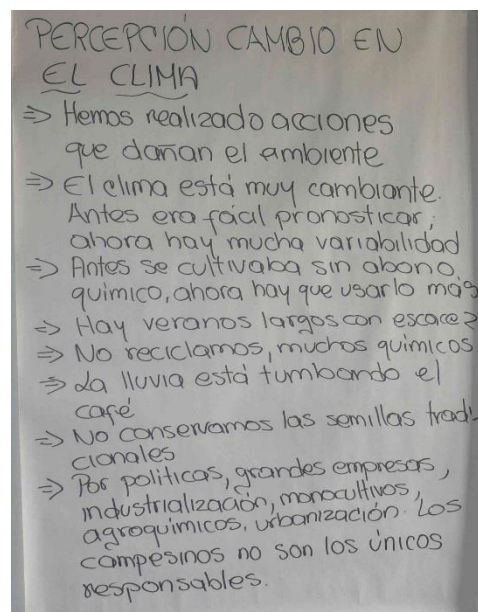 PERCEPCIÓN CAMBIO EN
EL CLIMA
⇒ Hemos realizado acciones
que dañan el ambiente
⇒ El clima está muy cambiante.
Antes era fácil pronosticar;
ahora hay mucha variabilidad
⇒ Antes se cultivaba sin abono
químico, ahora hay que usarlo más
⇒ Hay veranos largos con escacez
⇒ No reciclamos, muchos químicos
⇒ La lluvia está tumbando el
café
⇒ No conservamos las semillas tradi
cionales
⇒ Por políticas, grandes empresas,
industrialización, monocultivos,
agroquímicos, urbanización. Los
campesinos no son los únicos
responsables.